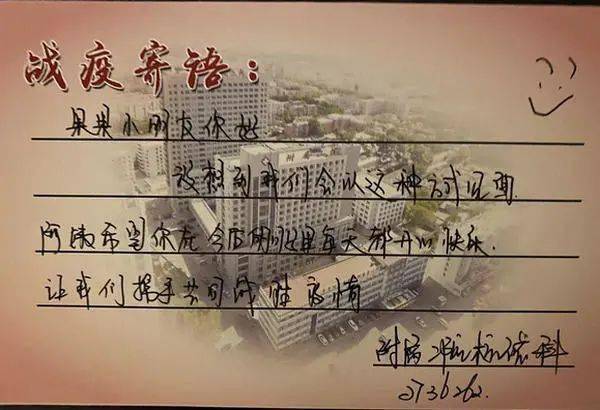 战疫寄语：
果果小朋友你好
没想到我们会以这种方式见面.
阿姨希望你在今后的日子里每天都开心快乐.
让我们携手共同战胜疫情
附属 核磁科
2736262.